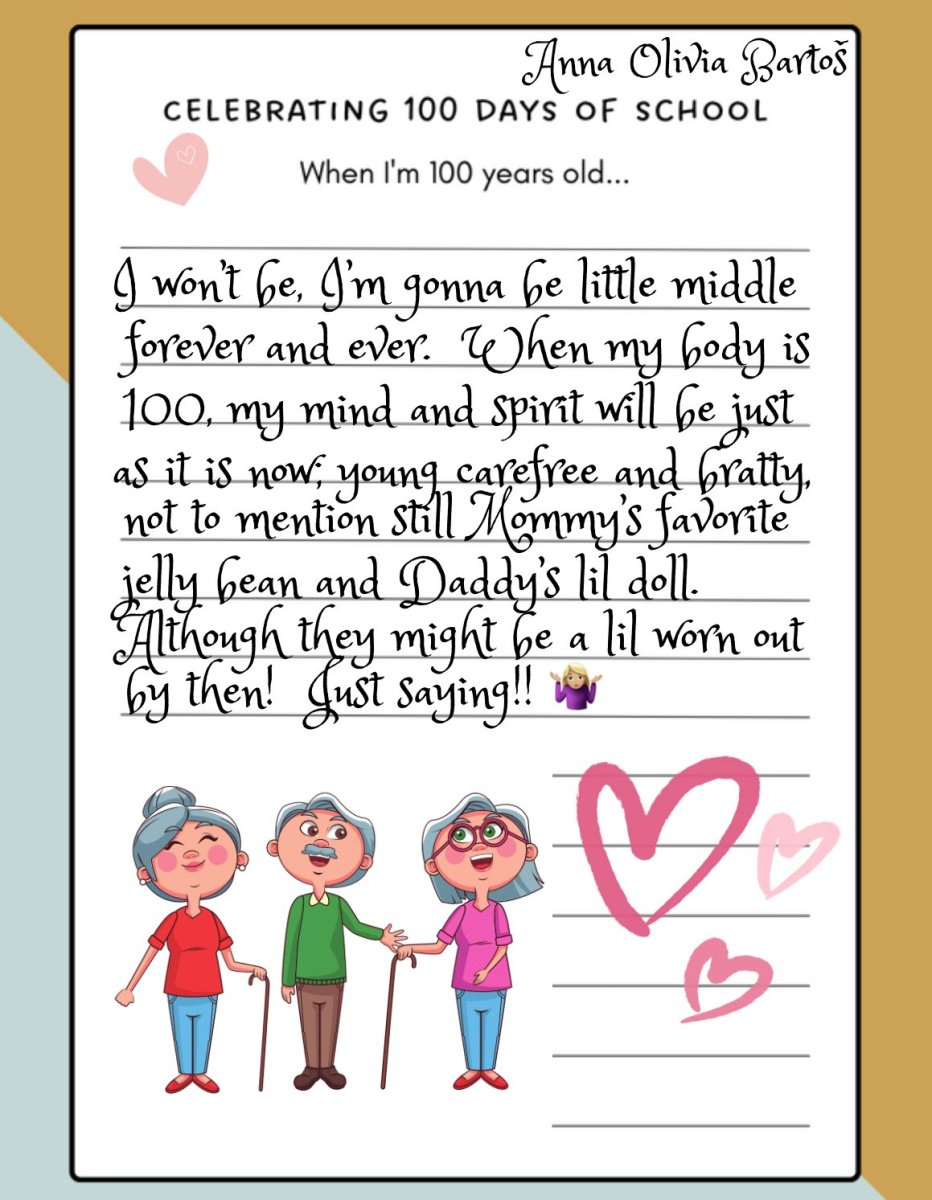 Anna Olivia Bartoš
CELEBRATING 100 DAYS OF SCHOOL
When I'm 100 years old...
I won't be, I'm gonna be little middle
forever and ever. When my body is
100, my mind and spirit will be just
as it is now; young carefree and bratty,
not to mention still Mommy's favorite
jelly bean and Daddy's lil doll.
Although they might be a lil worn out
by then! Just saying!! 🤷🏼‍♀️